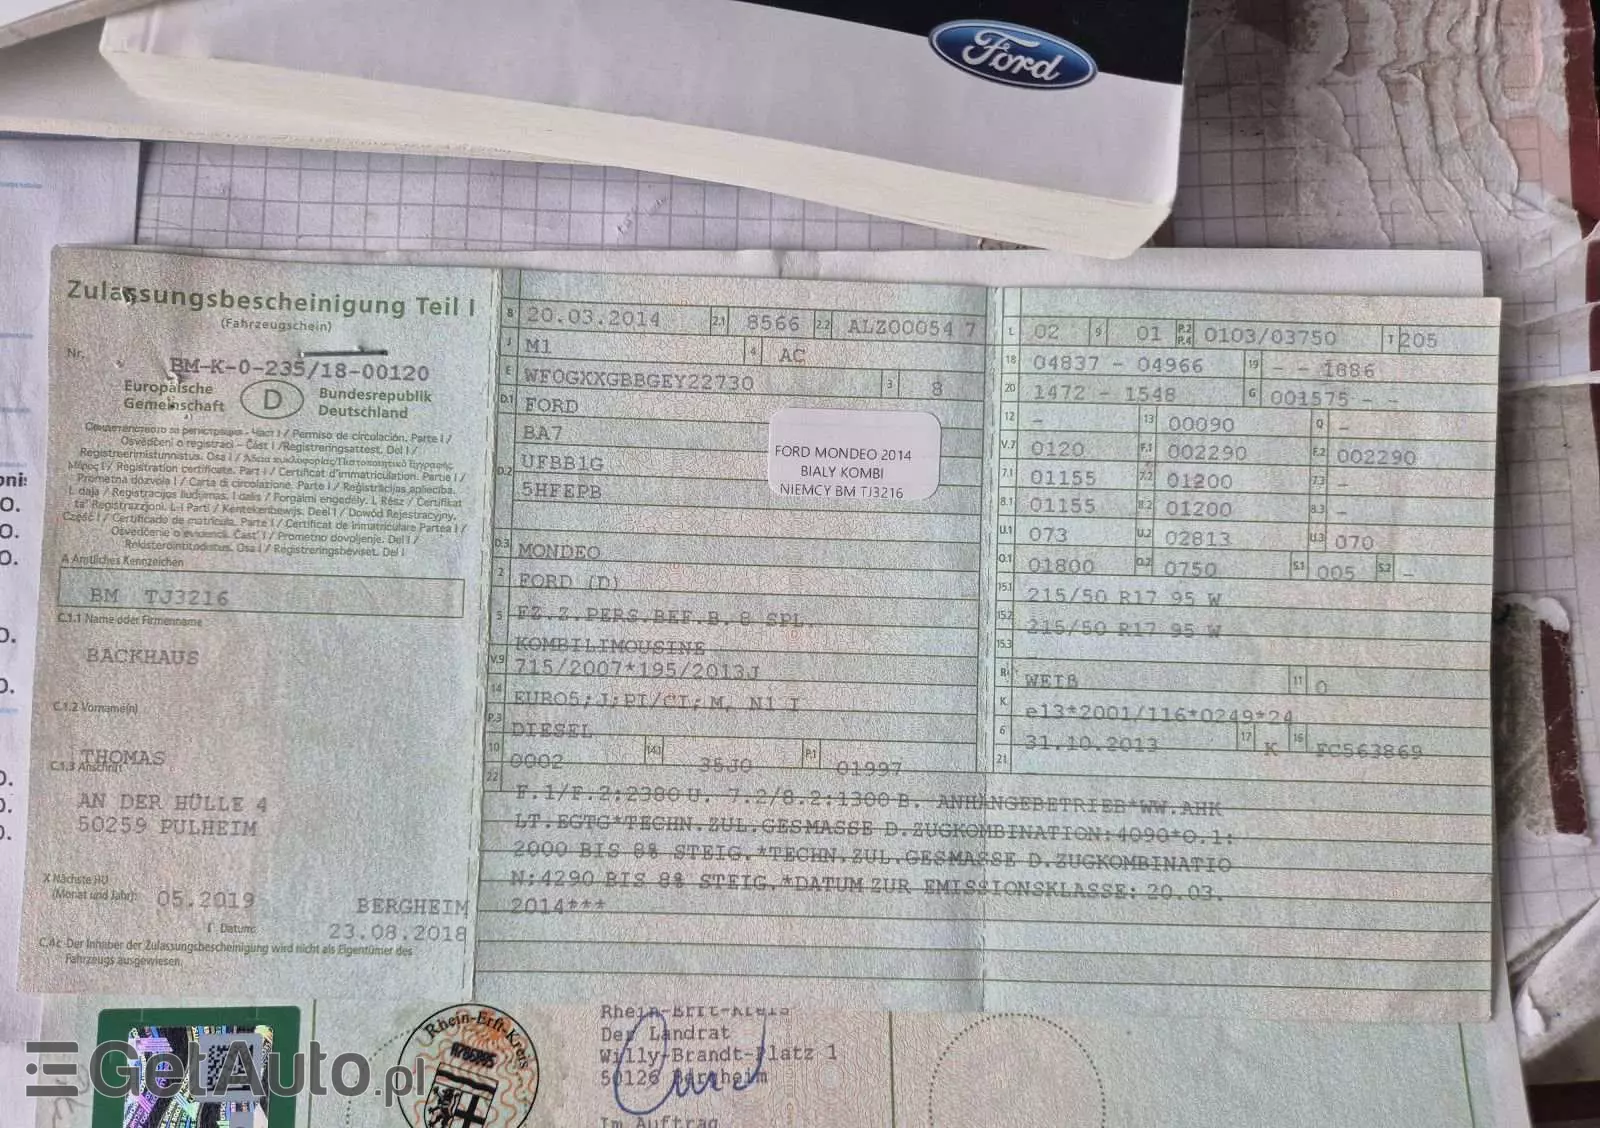 Ford
Zulassungsbescheinigung Teil I
(Fahrzeugschein)
Nr. BM-K-0-235/18-00120
Europäische Gemeinschaft
D
Bundesrepublik Deutschland
Osvědčení o registraci – Část I / Registreringsattest. Del I /
A Amtliches Kennzeichen
BM TJ3216
C.1.1 Name oder Firmenname
BACKHAUS
C.1.2 Vorname(n)
THOMAS
C.1.3 Anschrift
AN DER HÜLLE 4
50259 PULHEIM
X Nächste HU
(Monat und Jahr): 05.2019
BERGHEIM
I Datum: 23.08.2018
C.4c Der Inhaber der Zulassungsbescheinigung wird nicht als Eigentümer des
Fahrzeugs ausgewiesen.
B 20.03.2014 2.1 8566 2.2 ALZ00054 7
J M1 4 AC
E WF0GXXGBBGEY22730 3 8
D.1 FORD
BA7
D.2 UFBB1G
5HFEPB
D.3 MONDEO
2 FORD (D)
5 FZ.Z.PERS.BEF.B. 8 SPL.
KOMBILIMOUSINE
V.9 715/2007*195/2013J
14 EURO5;J;PI/CI; M, N1 I
P.3 DIESEL
10 0002 14.1 35J0 P.1 01997
FORD MONDEO 2014
BIALY KOMBI
NIEMCY BM TJ3216
L 02 9 01 P.2 P.4 0103/03750 T 205
18 04837 - 04966 19 - - 1886
20 1472 - 1548 G 001575 - -
12 - 13 00090 Q -
V.7 0120 F.1 002290 F.2 002290
7.1 01155 7.2 01200 7.3 -
8.1 01155 8.2 01200 8.3 -
U.1 073 U.2 02813 U.3 070
O.1 01800 O.2 0750 S.1 005 S.2 -
15.1 215/50 R17 95 W
15.2 215/50 R17 95 W
15.3
R WEIß 11 0
K e13*2001/116*0249*24
6 31.10.2013 17 K 16 FC563869
21
22 F.1/F.2:2380 U. 7.2/8.2:1300 B. ANHÄNGEBETRIEB*WW.AHK
LT.EGTG*TECHN.ZUL.GESMASSE D.ZUGKOMBINATION:4090*O.1:
2000 BIS 8% STEIG.*TECHN.ZUL.GESMASSE D.ZUGKOMBINATIO
N:4290 BIS 8% STEIG.*DATUM ZUR EMISSIONSKLASSE: 20.03.
2014***
Rhein-Erft-Kreis
Rhein-Erft-Kreis
Der Landrat
Willy-Brandt-Platz 1
50126 Bergheim
Im Auftrag
GetAuto.pl